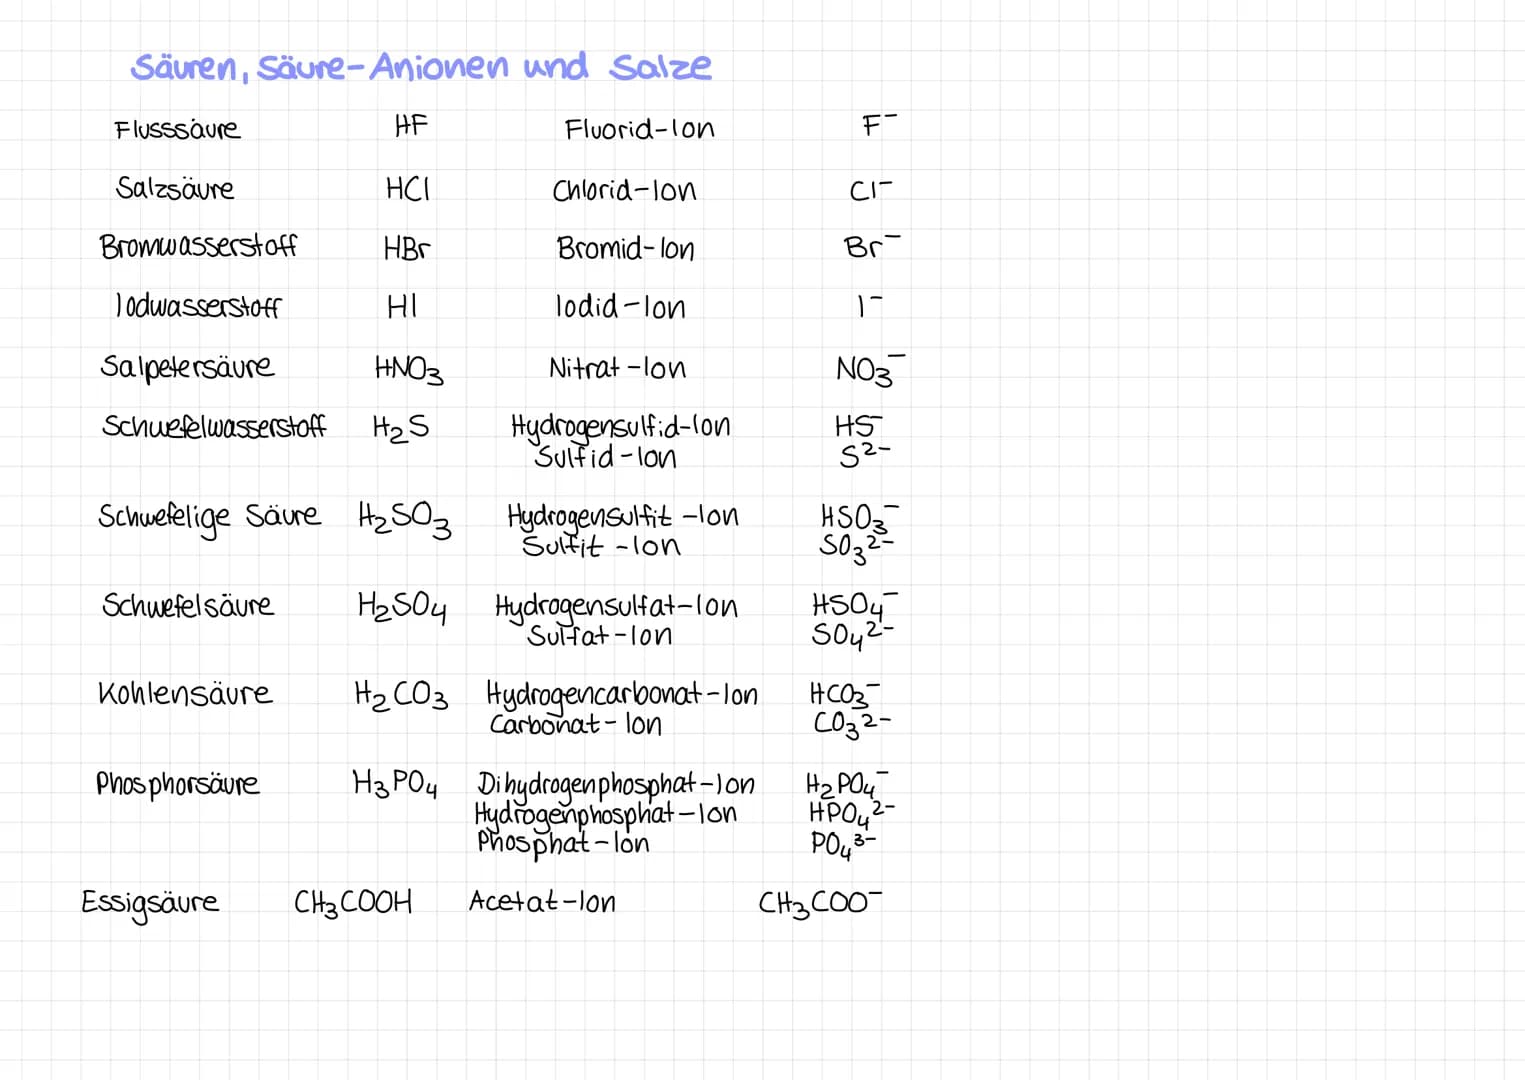 Säuren, Säure-Anionen und Salze
Flusssäure HF Fluorid-Ion F⁻
Salzsäure HCl Chlorid-Ion Cl⁻
Bromwasserstoff HBr Bromid-Ion Br⁻
Iodwasserstoff HI Iodid-Ion I⁻
Salpetersäure HNO₃ Nitrat-Ion NO₃⁻
Schwefelwasserstoff H₂S Hydrogensulfid-Ion HS⁻
Sulfid-Ion S²⁻
Schwefelige Säure H₂SO₃ Hydrogensulfit-Ion HSO₃⁻
Sulfit-Ion SO₃²⁻
Schwefelsäure H₂SO₄ Hydrogensulfat-Ion HSO₄⁻
Sulfat-Ion SO₄²⁻
Kohlensäure H₂CO₃ Hydrogencarbonat-Ion HCO₃⁻
Carbonat-Ion CO₃²⁻
Phosphorsäure H₃PO₄ Dihydrogenphosphat-Ion H₂PO₄⁻
Hydrogenphosphat-Ion HPO₄²⁻
Phosphat-Ion PO₄³⁻
Essigsäure CH₃COOH Acetat-Ion CH₃COO⁻